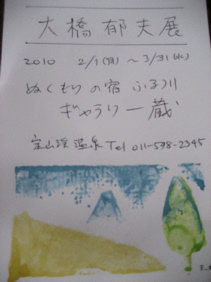 大橋郁夫展
2010 2/1(月)〜3/31(水)
ぬくもりの宿 ふる川
ギャラリー蔵
定山渓温泉 Tel 011-598-2345